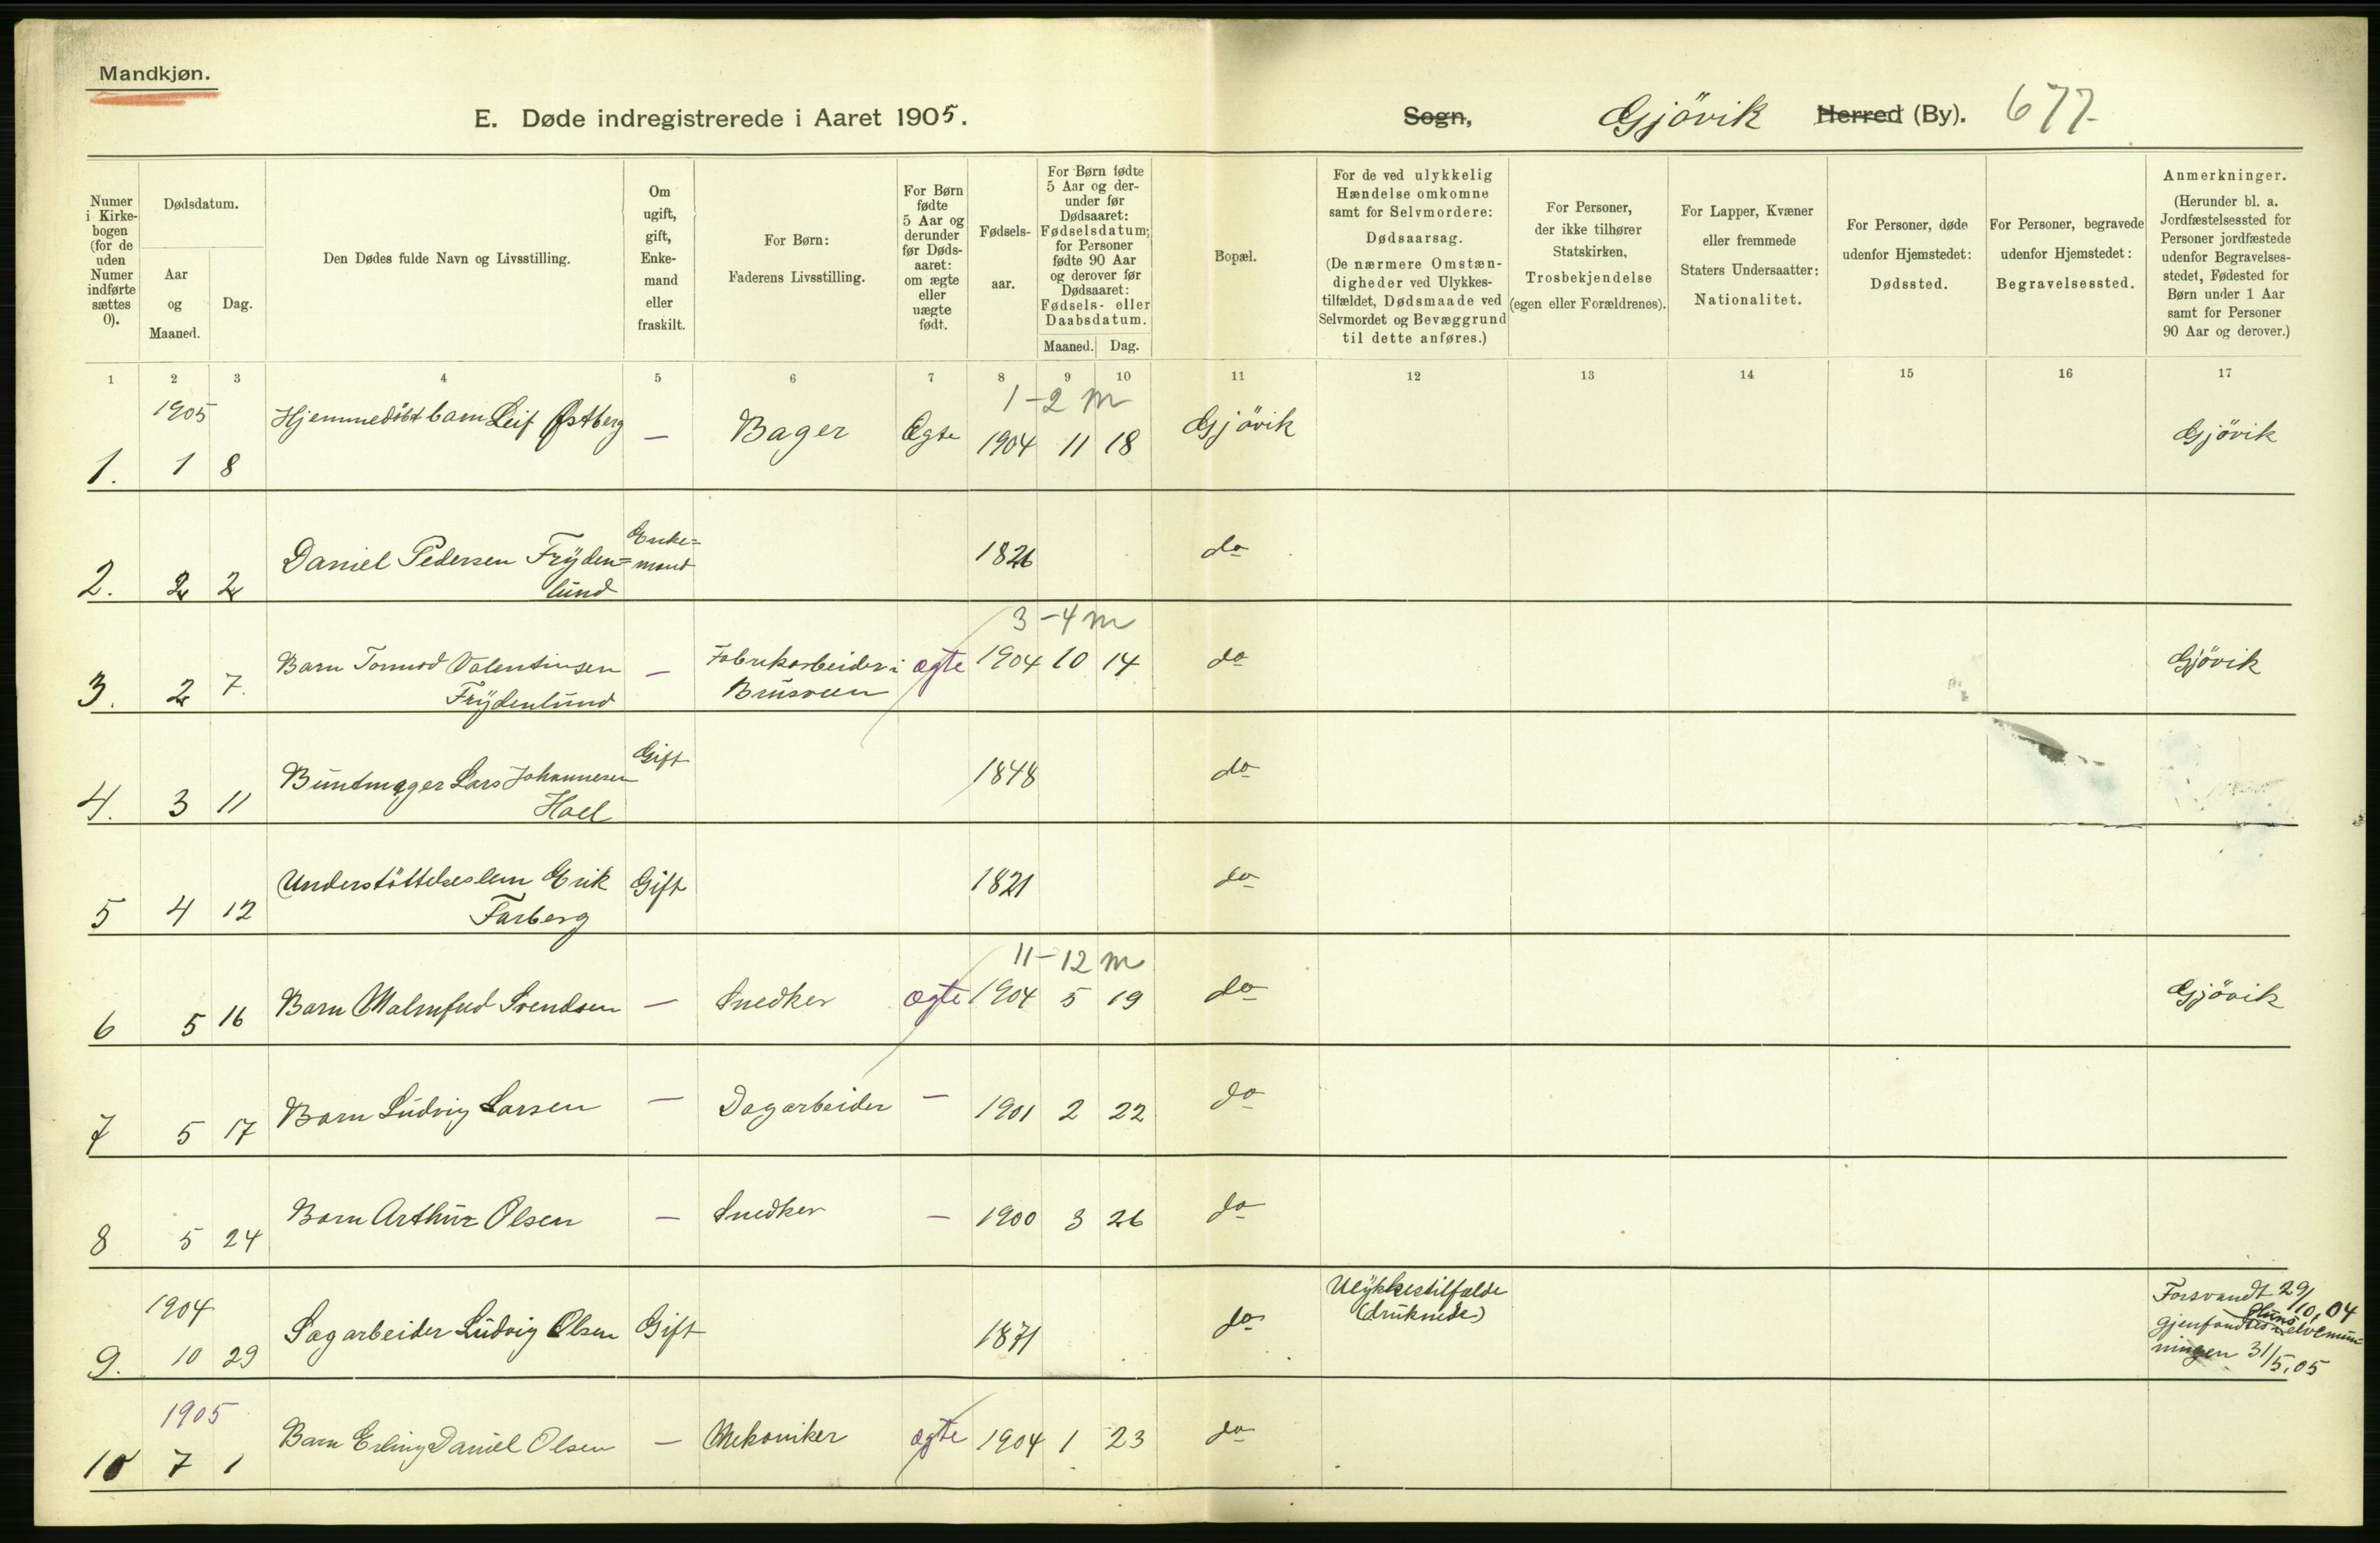 Mandkjøn.
E. Døde indregistrerede i Aaret 1905.
Sogn, Gjövik Herred (By). 677.
Numer i Kirkebogen (for de uden Numer indførte sættes 0).
Dødsdatum.
Aar og Maaned.
Dag.
Den Dødes fulde Navn og Livsstilling.
Om ugift, gift, Enkemand eller fraskilt.
For Børn: Faderens Livsstilling.
For Børn fødte 5 Aar og derunder før Dødsaaret: om ægte eller uægte født.
Fødselsaar.
For Børn fødte 5 Aar og derunder før Dødsaaret: Fødselsdatum; for Personer fødte 90 Aar og derover før Dødsaaret: Fødsels- eller Daabsdatum.
Maaned. Dag.
Bopæl.
For de ved ulykkelig Hændelse omkomne samt for Selvmordere: Dødsaarsag. (De nærmere Omstændigheder ved Ulykkestilfældet, Dødsmaade ved Selvmordet og Bevæggrund til dette anføres.)
For Personer, der ikke tilhører Statskirken, Trosbekjendelse (egen eller Forældrenes).
For Lapper, Kvæner eller fremmede Staters Undersaatter: Nationalitet.
For Personer, døde udenfor Hjemstedet: Dødssted.
For Personer, begravede udenfor Hjemstedet: Begravelsessted.
Anmerkninger. (Herunder bl. a. Jordfæstelsessted for Personer jordfæstede udenfor Begravelsesstedet, Fødested for Børn under 1 Aar samt for Personer 90 Aar og derover.)
1 2 3 4 5 6 7 8 9 10 11 12 13 14 15 16 17
1905 1-2 m
1. 1 8 Hjemmedöbt barn Leif Østberg — Bager Ægte 1904 11 18 Gjövik Gjövik
2. 2 2 Daniel Pedersen Frÿden= Enke= 1826 do
lund mand
3-4 m
3. 2 7. Barn Tormod Valentinsen — Fabrikarbeider i ægte 1904 10 14 do Gjövik
Frÿdenlund Brusveen
4. 3 11 Buntmager Lars Johannesen Gift 1848 do
Hoel
5 4 12 Understöttelseslem Erik Gift 1821 do
Farberg
11-12 m
6 5 16 Barn Malmfred Svendsen — Snedker ægte 1904 5 19 do Gjövik
7 5 17 Barn Ludvig Larsen — Dagarbeider — 1901 2 22 do
8 5 24 Barn Arthur Olsen — Snedker — 1900 3 26 do
1904
9. 10 29 Sagarbeider Ludvig Olsen Gift 1871 do Ulÿkkestilfælde
(druknede)
Forsvandt 29/10,04
Huns
gjenfandtes elvemun-
ningen 31/5,05
1905
10 7 1 Barn Erling Daniel Olsen — Mekaniker ægte 1904 1 23 do